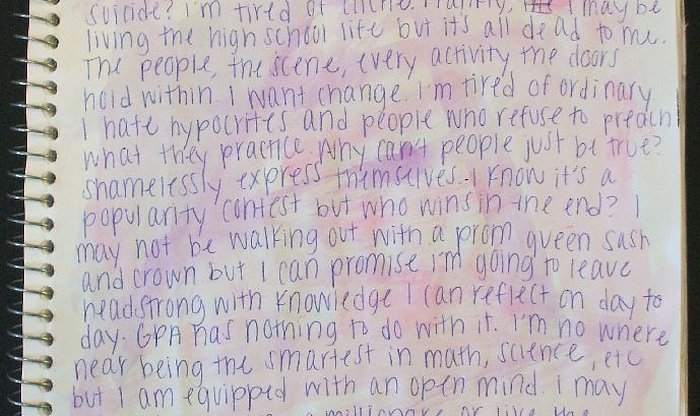 suicide? I'm tired of cliché. Frankly, I may be
living the high school life but it's all dead to me.
The people, the scene, every activity the doors
hold within I want change. I'm tired of ordinary
I hate hypocrites and people who refuse to preach
what they practice. Why can't people just be true?
shamelessly express themselves. I know it's a
popularity contest but who wins in the end? I
may not be walking out with a prom queen sash
and crown but I can promise I'm going to leave
headstrong with knowledge I can reflect on day to
day. GPA has nothing to do with it. I'm no where
near being the smartest in math, science, etc
but I am equipped with an open mind. I may
a millionare or live the